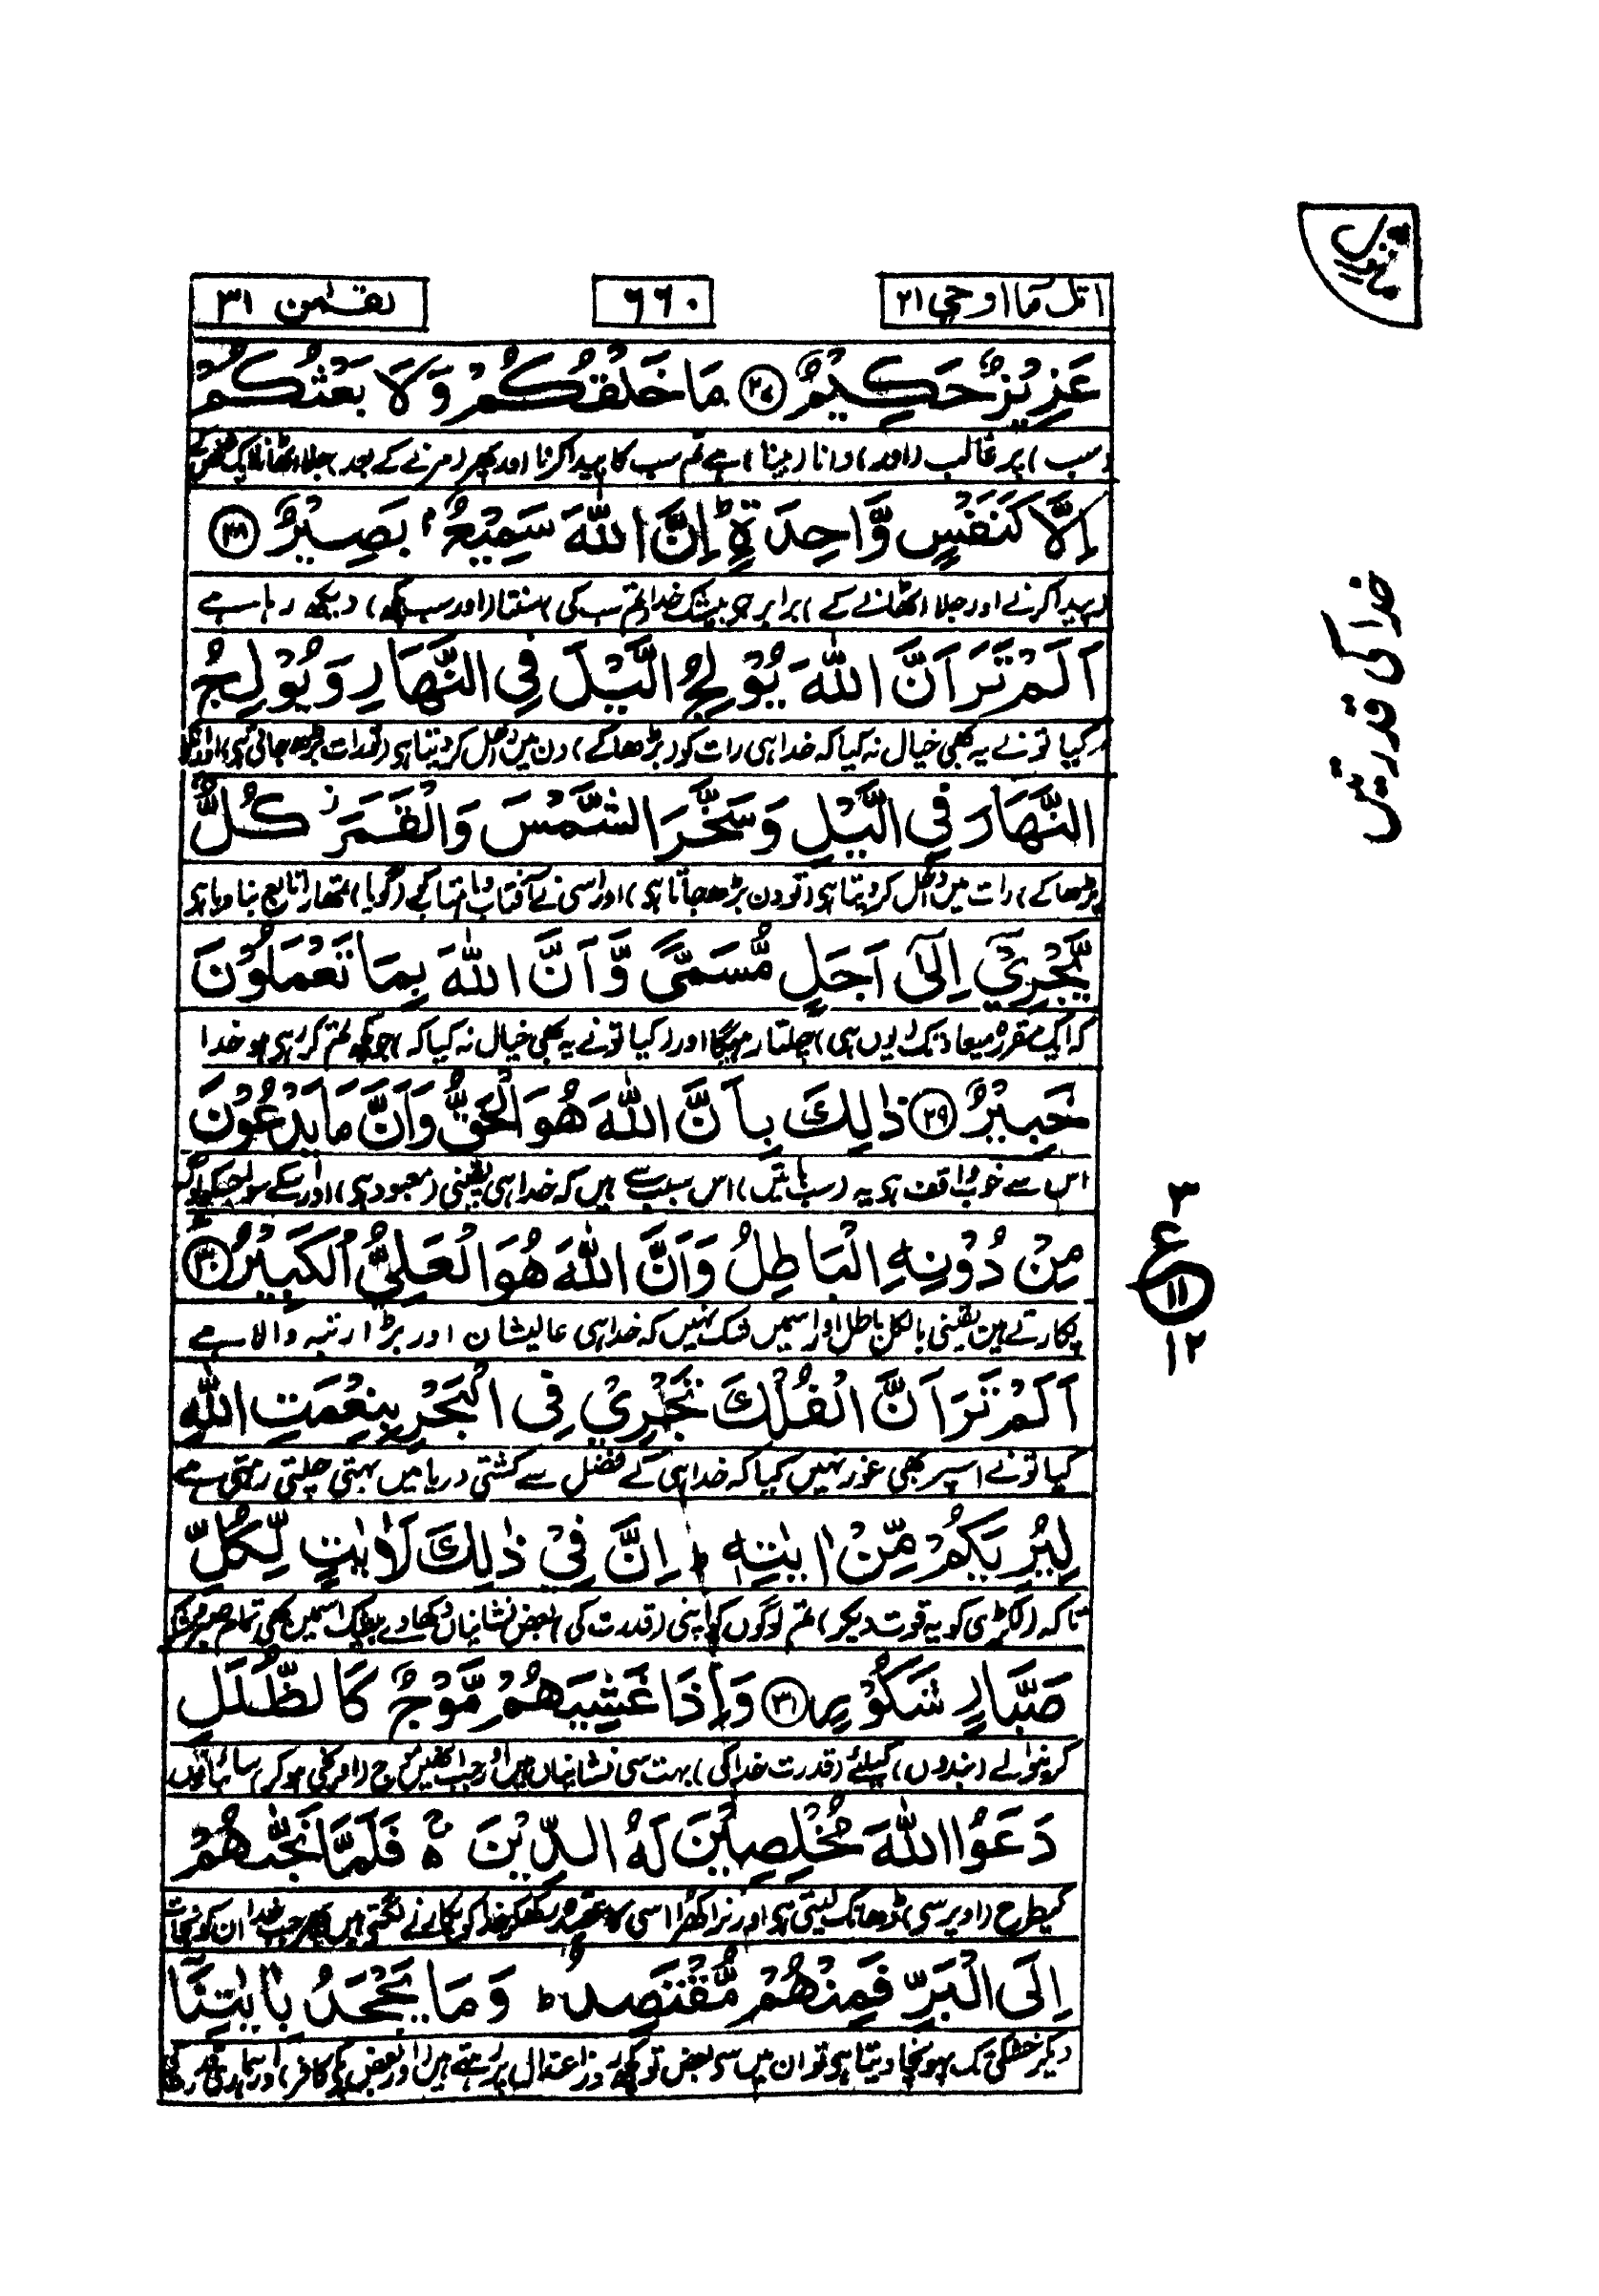 اتل مَا اوحی ۲۱
۶۶۰
لقمٰن ۳۱
عَزِيْزٌ حَكِيْمٌ ۝۲۷ مَا خَلْقُكُمْ وَلَا بَعْثُكُمْ
سب) پر غالب (اور) دانا (بینا) ہے تم سب کا پیدا کرنا اور پھر (مرنے کے بعد) جلا اٹھانا ایک شخص کے
اِلَّا كَنَفْسٍ وَّاحِدَةٍ ؕ اِنَّ اللّٰهَ سَمِيْعٌۢ بَصِيْرٌ ۝۲۸
پیدا کرنے اور جلا اٹھانے کے) برابر ہے بیشک خدا (تم سب کی) سنتا (اور سب کچھ) دیکھ رہا ہے
اَلَمْ تَرَ اَنَّ اللّٰهَ يُوْلِجُ الَّيْلَ فِي النَّهَارِ وَيُوْلِجُ
کیا تو نے یہ بھی خیال نہ کیا کہ خدا ہی رات کو (بڑھا کے) دن میں داخل کر دیتا ہو (تو رات بڑھ جاتی ہو)
النَّهَارَ فِي الَّيْلِ وَسَخَّرَ الشَّمْسَ وَالْقَمَرَ ز كُلٌّ
بڑھا کے) رات میں داخل کر دیتا ہو (تو دن بڑھ جاتا ہو) اور اسی نے آفتاب و ماہتاب کو (گویا) تمھارا تابع بنا دیا ہو
يَّجْرِيْٓ اِلٰٓى اَجَلٍ مُّسَمًّى وَّاَنَّ اللّٰهَ بِمَا تَعْمَلُوْنَ
کہ ایک مقرر میعاد تک (یوں ہی) چلتا رہیگا اور (کیا تو نے یہ بھی خیال نہ کیا کہ) جو کچھ تم کر رہی ہو خدا
خَبِيْرٌ ۝۲۹ ذٰلِكَ بِاَنَّ اللّٰهَ هُوَ الْحَقُّ وَاَنَّ مَا يَدْعُوْنَ
اس سے خوب واقف ہو یہ (سب باتیں) اس سبب سے ہیں کہ خدا ہی یقینی (معبود ہو) اور اسکے سوا جسکو لوگ
مِنْ دُوْنِهِ الْبَاطِلُ وَاَنَّ اللّٰهَ هُوَ الْعَلِيُّ الْكَبِيْرُ ۝۳۰
پکارتے ہیں یقینی بالکل باطل اور اسمیں شک نہیں کہ خدا ہی عالیشان اور بڑا رتبہ والا ہے
اَلَمْ تَرَ اَنَّ الْفُلْكَ تَجْرِيْ فِي الْبَحْرِ بِنِعْمَتِ اللّٰهِ
کیا تو نے اسپر بھی غور نہیں کیا کہ خدا ہی کے فضل سے کشتی دریا میں بہتی چلتی رہتی ہے
لِيُرِيَكُمْ مِّنْ اٰيٰتِهٖ ؕ اِنَّ فِيْ ذٰلِكَ لَاٰيٰتٍ لِّكُلِّ
تاکہ (لکڑی کو یہ قوت دیکر) تم لوگوں کو اپنی (قدرت کی) بعض نشانیاں دکھا دے بیشک اسمیں بھی تمام صبر و شکر
صَبَّارٍ شَكُوْرٍ ۝۳۱ وَاِذَا غَشِيَهُمْ مَّوْجٌ كَالظُّلَلِ
کرنیوالے (بندوں) کیلئے (قدرت خدا کی) بہت سی نشانیاں ہیں اور جب انھیں موج (اونچی ہو کر) سائبانوں
دَعَوُا اللّٰهَ مُخْلِصِيْنَ لَهُ الدِّيْنَ ۚ فَلَمَّا نَجّٰىهُمْ
کیطرح (اوپر سی) ڈھانک لیتی ہو اور نرا کھرا اسی کا عقیدہ رکھکر خدا کو پکارنے لگتے ہیں پھر جب خدا ان کو نجات
اِلَى الْبَرِّ فَمِنْهُمْ مُّقْتَصِدٌ ؕ وَمَا يَجْحَدُ بِاٰيٰتِنَآ
دیکر خشکی تک پہونچا دیتا ہو تو ان میں سی بعض تو کچھ اعتدال پر رہتے ہیں (اور بعض پکے کافر) اور ہماری
منزل
خدا کی قدرتیں
۳
ع
۱۱
۱۲